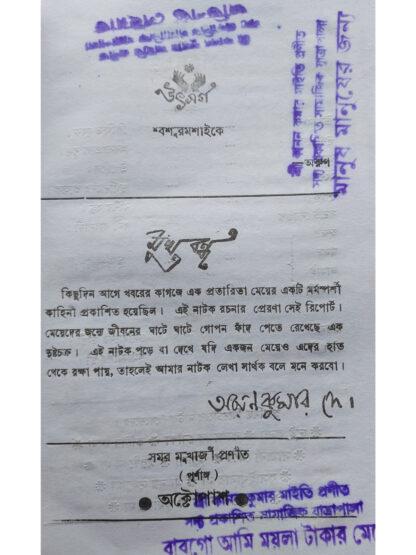 উৎসর্গ
শ্বশুরমশাইকে
অরুণ
মানুষ মানুষের জন্য
মুখবন্ধ
কিছুদিন আগে খবরের কাগজে এক প্রতারিতা মেয়ের একটি মর্মস্পর্শী
কাহিনী প্রকাশিত হয়েছিল। এই নাটক রচনার প্রেরণা সেই রিপোর্ট।
মেয়েদের জন্যে জীবনের ঘাটে ঘাটে গোপন ফাঁদ পেতে রেখেছে এক
দুষ্টচক্র। এই নাটক পড়ে বা দেখে যদি একজন মেয়েও এদের হাত
থেকে রক্ষা পায়, তাহলেই আমার নাটক লেখা সার্থক বলে মনে করবো।
অরুণকুমার দে।
সমর মুখার্জী প্রণীত
(পূর্ণাঙ্গ)
● অক্টোপাশ ●
কুমার মাইতি প্রণীত
সদ্য প্রকাশিত সামাজিক যাত্রাপালা
বাবগো আমি ময়লা টাকার মে